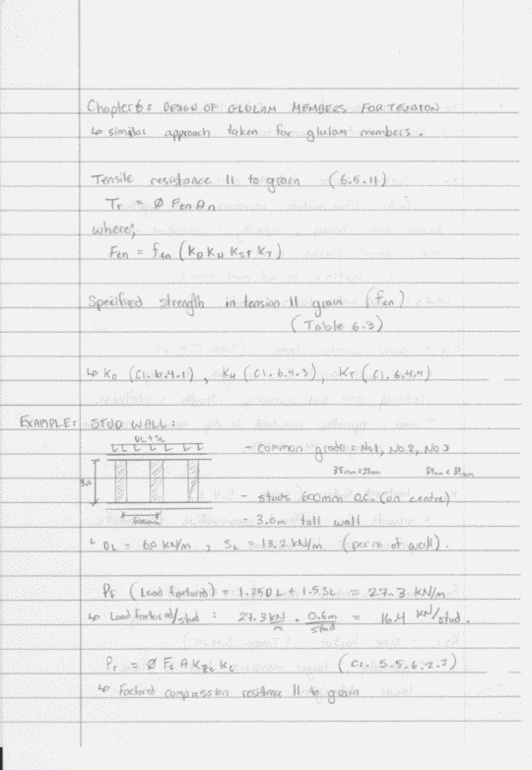 Chapter 6: DESIGN OF GLULAM MEMBERS FOR TENSION
↳ similar approach taken for glulam members.
Tensile resistance || to grain (6.5.11)
Tr = Ø Ften An
where;
Ften = ften (KD KH KSt KT)
Specified strength in tension || grain (ften)
(Table 6.3)
↳ KD (Cl. 6.4.1), KH (Cl. 6.4.3), KT (Cl. 6.4.4)
EXAMPLE: STUD WALL:
DL + SL
- common grade: No1, No 2, No 3
38mm x 38mm
3.0
- studs 600mm O.C. (on centre)
600mm
- 3.0m tall wall
↳ DL = 6.0 kN/m, SL = 13.2 kN/m (per m of wall).
Pf (Load factored) = 1.25DL + 1.5SL = 27.3 kN/m
↳ Load factored/stud: 27.3 kN/m · 0.6m/stud = 16.4 kN/stud.
Pr = Ø Fc A Kzc Kc (Cl. 5.5.6.2.3)
↳ Factored compression resistance || to grain